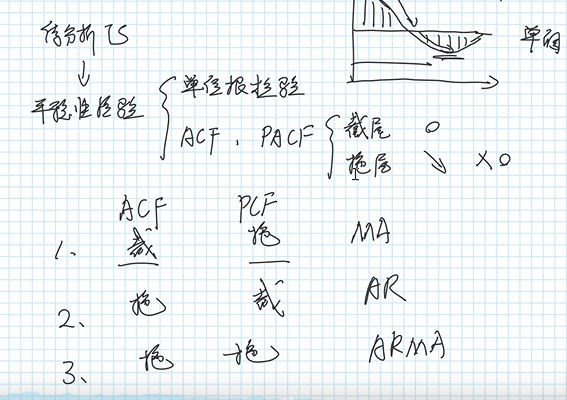 待分析 TS
单调
↓
平稳性检验
单位根检验
ACF、PACF
截尾 0
拖尾 ↘ ×0
ACF PCF
1、 截 拖 MA
2、 拖 截 AR
3、 拖 拖 ARMA